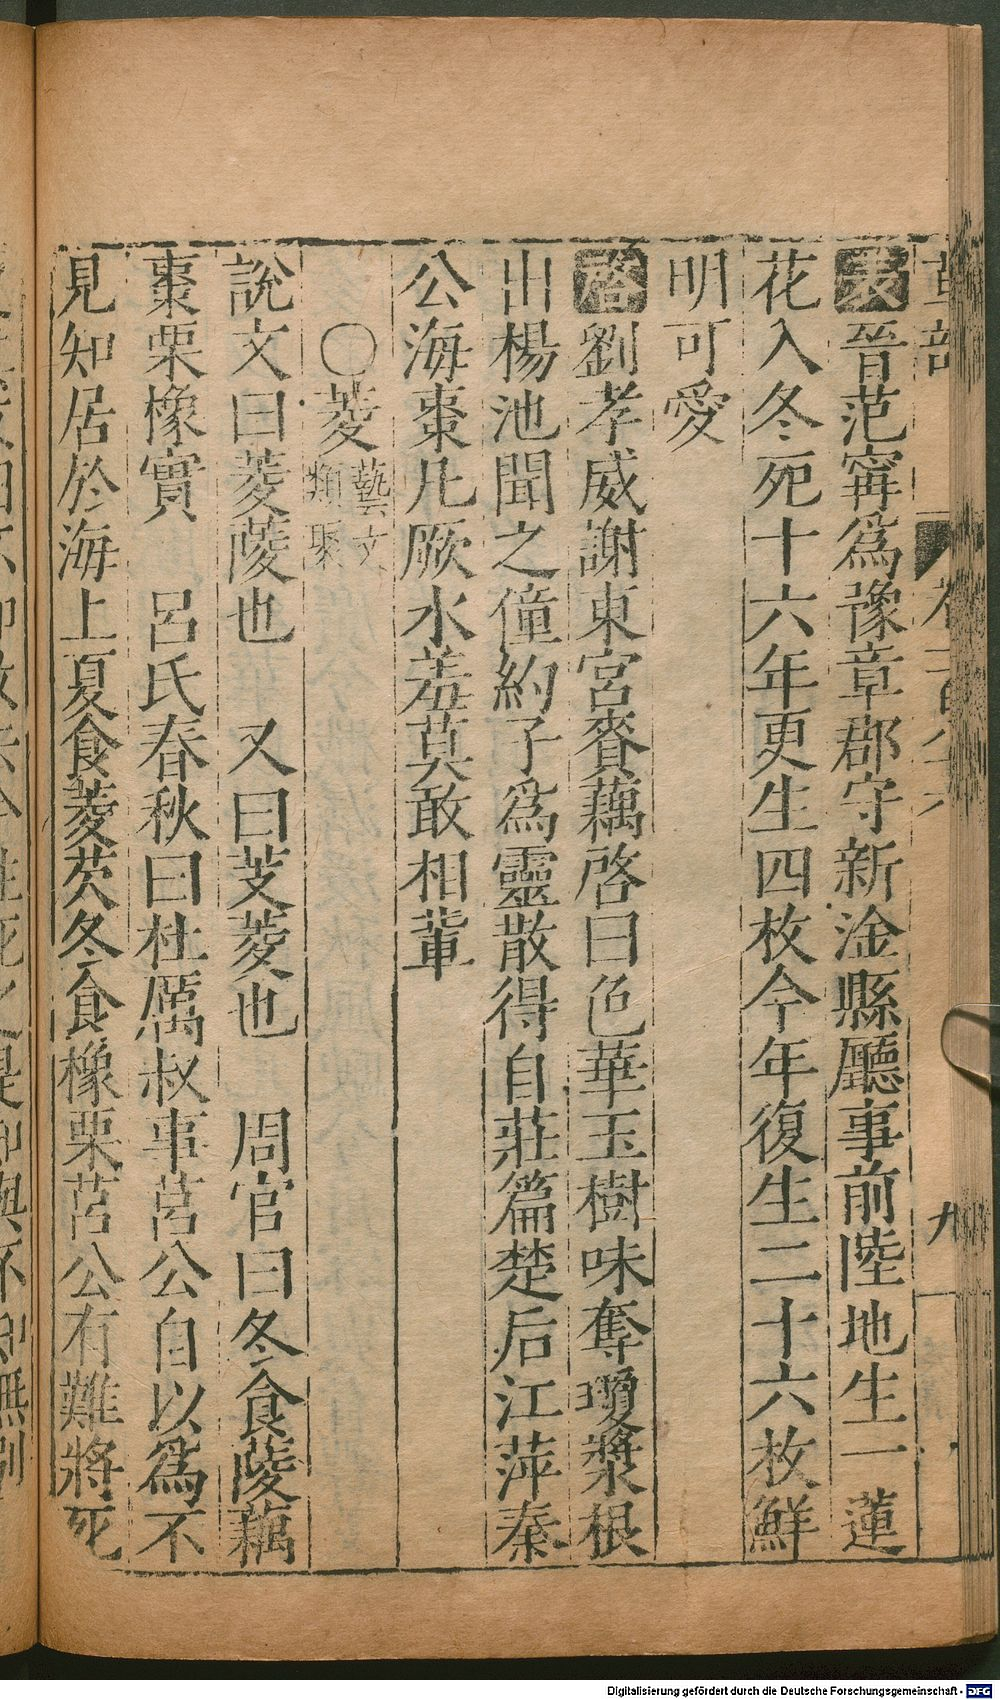 表晉范甯爲豫章郡守新淦縣廳事前陸地生一蓮
花入冬死十六年更生四枚今年復生二十六枚鮮
明可愛
啓劉孝威謝東宮賚藕啓曰色華玉樹味奪瓊漿根
出楊池聞之僮約子爲靈散得自莊篇楚后江萍秦
公海棗凡厥水羞莫敢相輩
〇菱藝文類聚
說文曰菱蔆也 又曰芰菱也 周官曰冬食蔆藕
棗栗橡實 呂氏春秋曰杜厲叔事莒公自以爲不
見知居於海上夏食菱芡冬食橡栗莒公有難將死
九
Digitalisierung gefördert durch die Deutsche Forschungsgemeinschaft - DFG